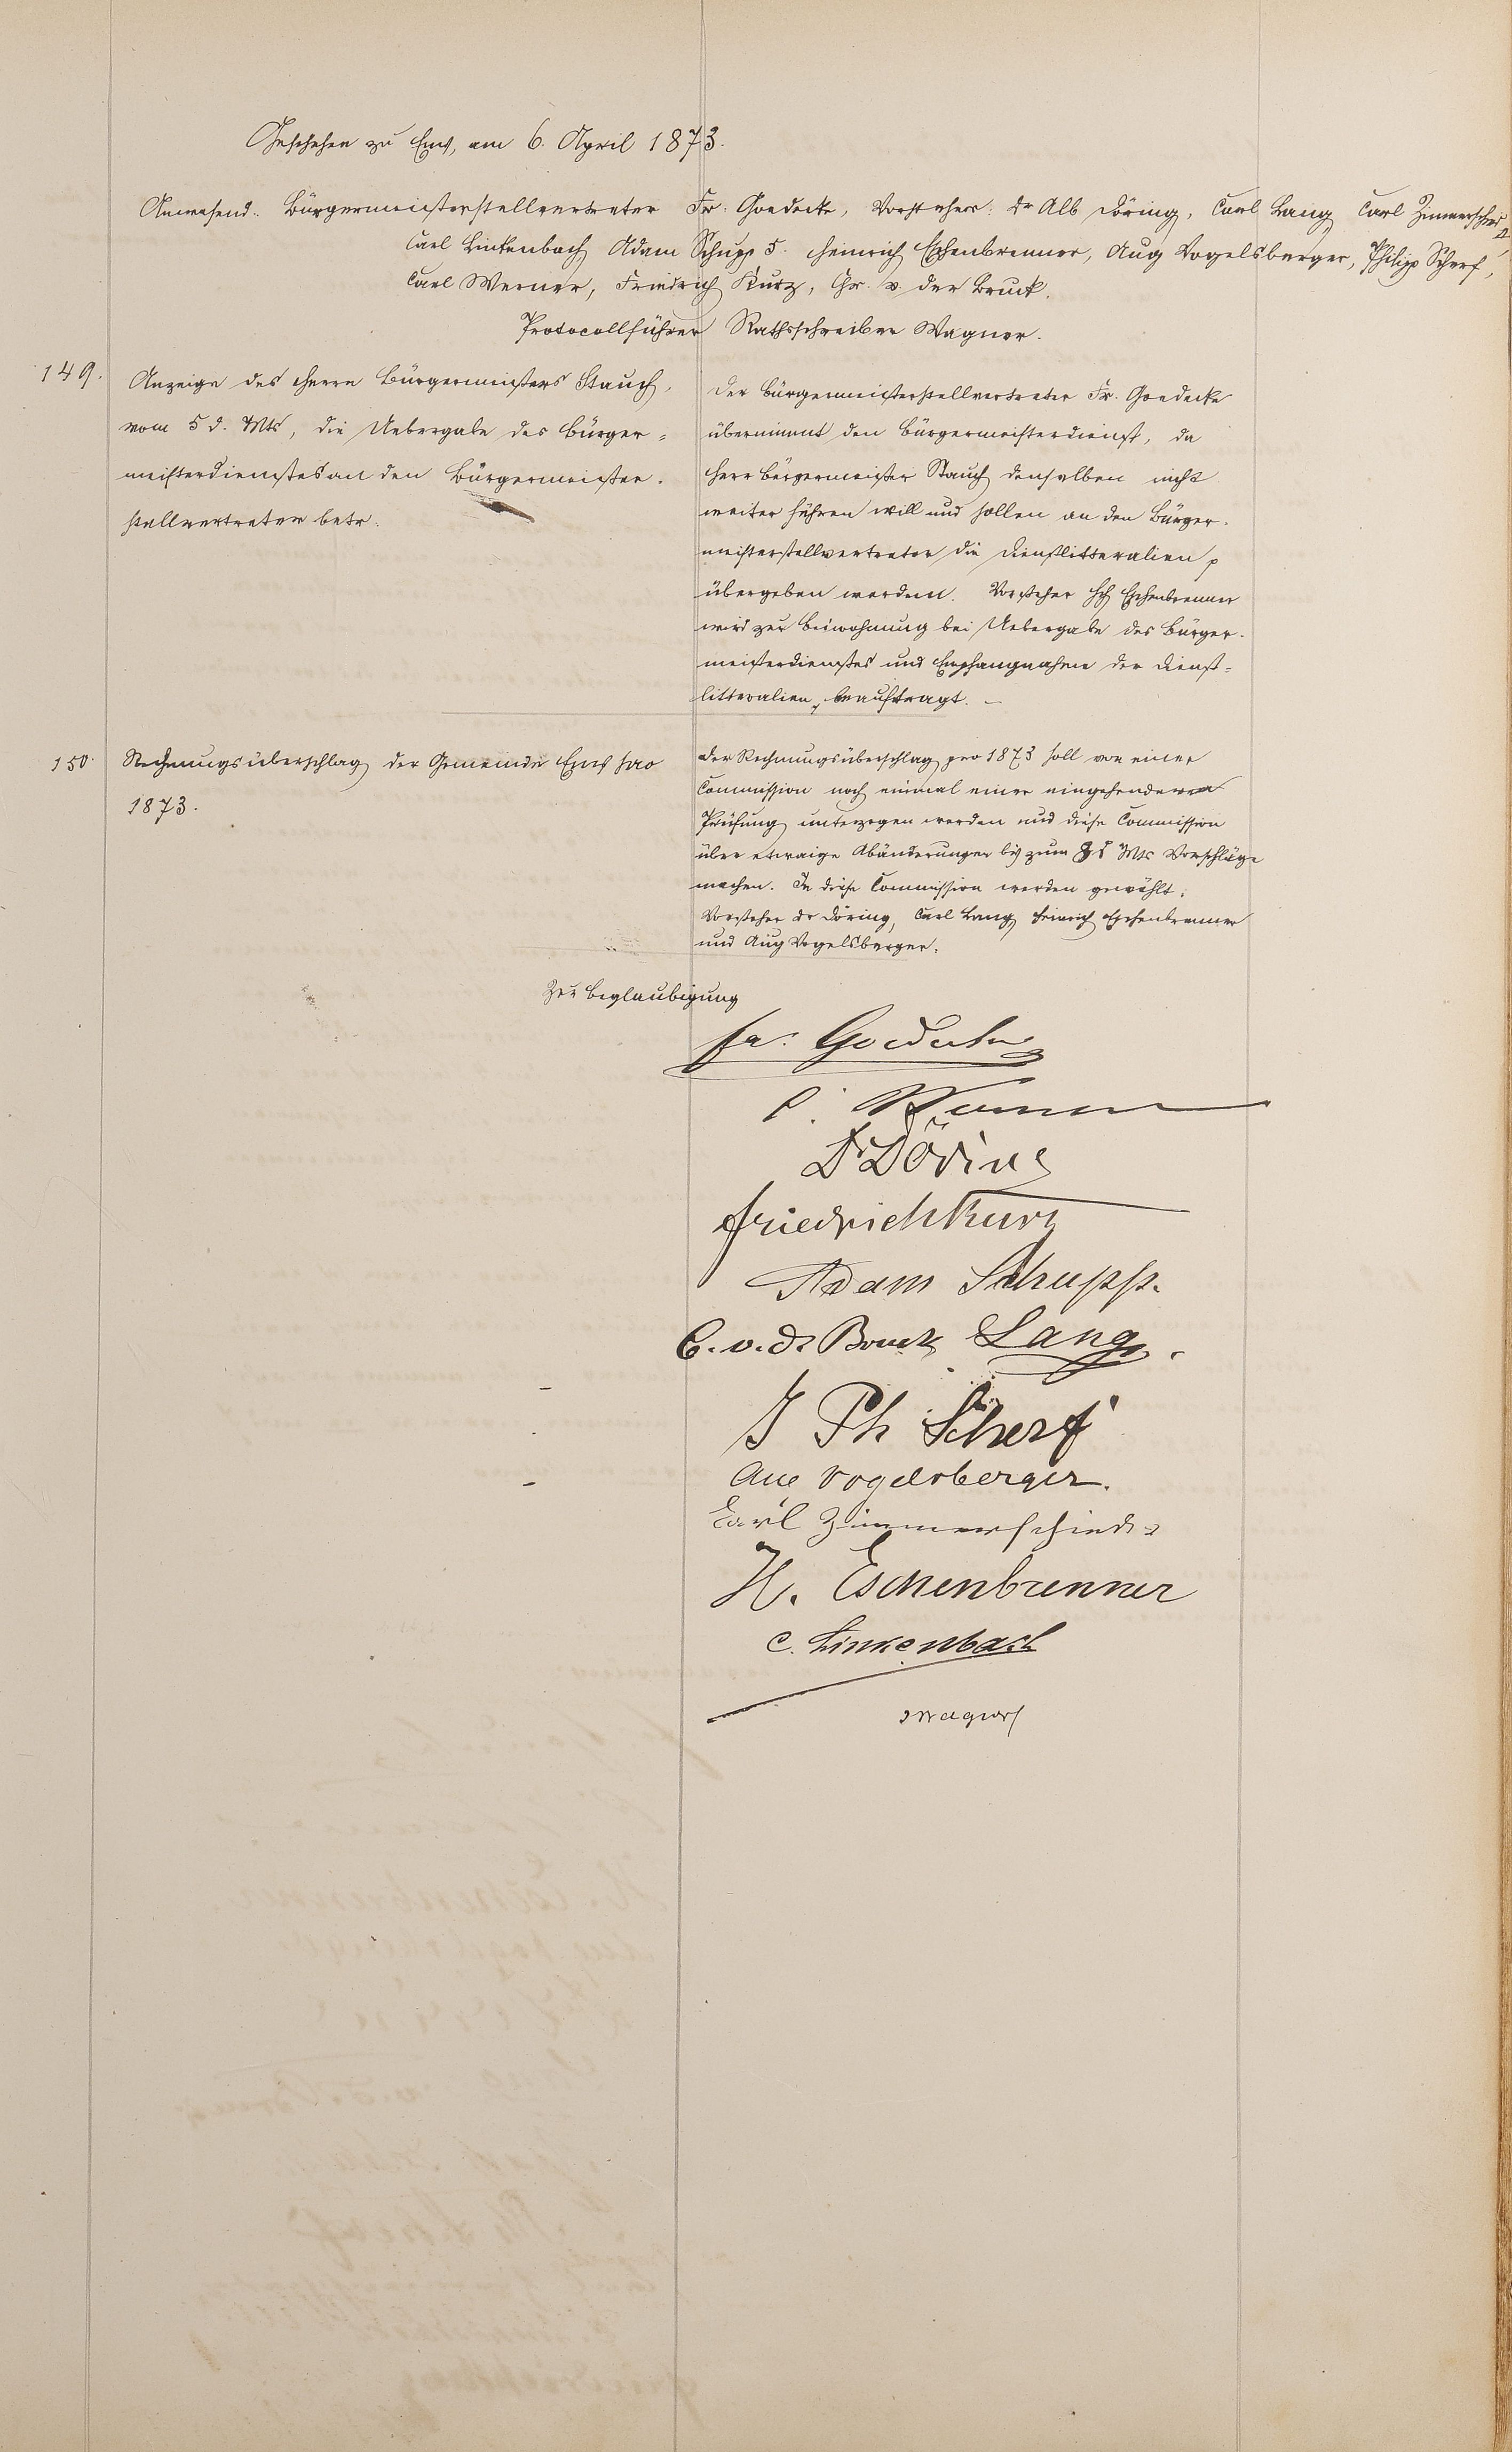 Geschehen zu Ems, am 6. April 1873.
Anwesend: Bürgermeisterstellvertreter Fr. Goedecke, Vorsteher: Dr Alb Döring, Carl Lang, Carl Zimmerschied 2,
Carl Linkenbach, Adam Schupp 5. Heinrich Eschenbrenner, Aug Vogelsberger, Philipp Scherf,
Carl Werner, Friedrich Kurz, Chr. v. der Bruck.
Protocollführer Rathsschreiber Wagner.
149.
Anzeige des Herrn Bürgermeisters Stauch,
vom 5 d. Mts, die Uebergabe des Bürger=
meisterdienstes an den Bürgermeister.
stellvertreter betr.
Der Bürgermeisterstellvertreter Fr. Goedecke
übernimmt den Bürgermeisterdienst, da
Herr Bürgermeister Stauch denselben nicht
weiter führen will und sollen an den Bürger.
meisterstellvertreter die Dienstlitteralien p
übergeben werden. Vorsteher Hch Eschenbrenner
wird zur Beiwohnung bei Uebergabe des Bürger.
meisterdienstes und Empfangnahme der Dienst=
litteralien p beauftragt. –
150.
Rechnungsüberschlag der Gemeinde Ems pro
1873.
Der Rechnungsüberschlag pro 1873 soll von einer
Commission noch einmal einer eingehenderen
Prüfung unterzogen werden und diese Commission
über etwaige Abänderungen bis zum Mts Vorschläge
machen. In diese Commission werden gewählt:
Vorsteher Dr Döring, Carl Lang, Heinrich Eschenbrenner
und Aug Vogelsberger.
Zur Beglaubigung
Fr. Goedecke
C. Werner
Dr Döring
Friedrich Kurz
Adam Schupp.
C. v. d. Bruck Lang.
J Ph Scherf
Aug Vogelsberger.
Carl Zimmerschied 2
H. Eschenbrenner
C. Linkenbach
Wagner